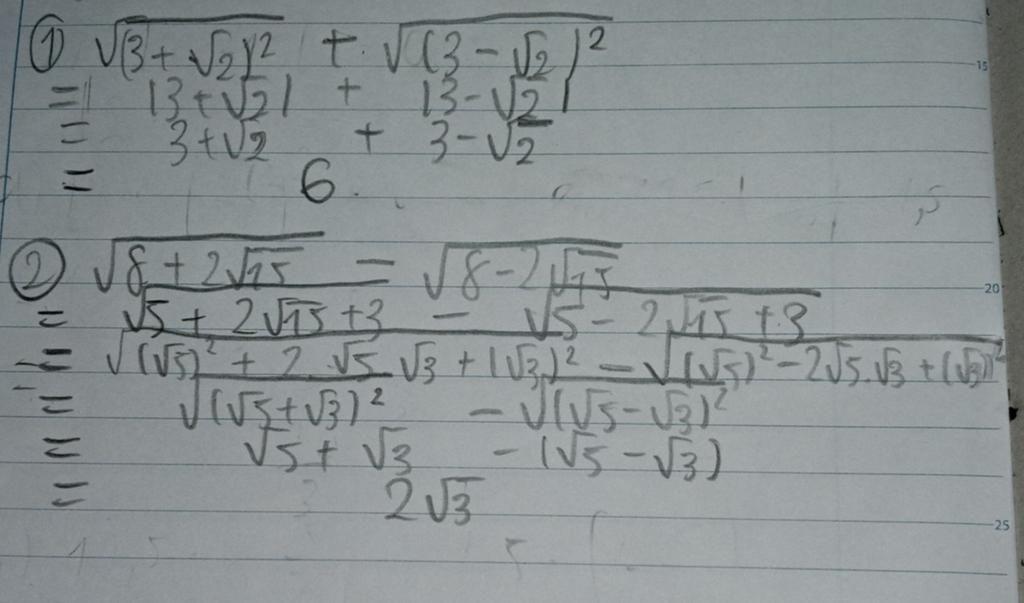 ① √(3+√2)² + √(3-√2)²
= |3+√2| + |3-√2|
= 3+√2 + 3-√2
= 6
② √8+2√15 = √8-2√15
= √5+2√15+3 - √5-2√15+3
= √(√5)²+2.√5 √3+(√3)² - √(√5)²-2√5.√3+(√3)²
= √(√5+√3)² - √(√5-√3)²
= √5+√3 - (√5-√3)
= 2√3
15
20
25